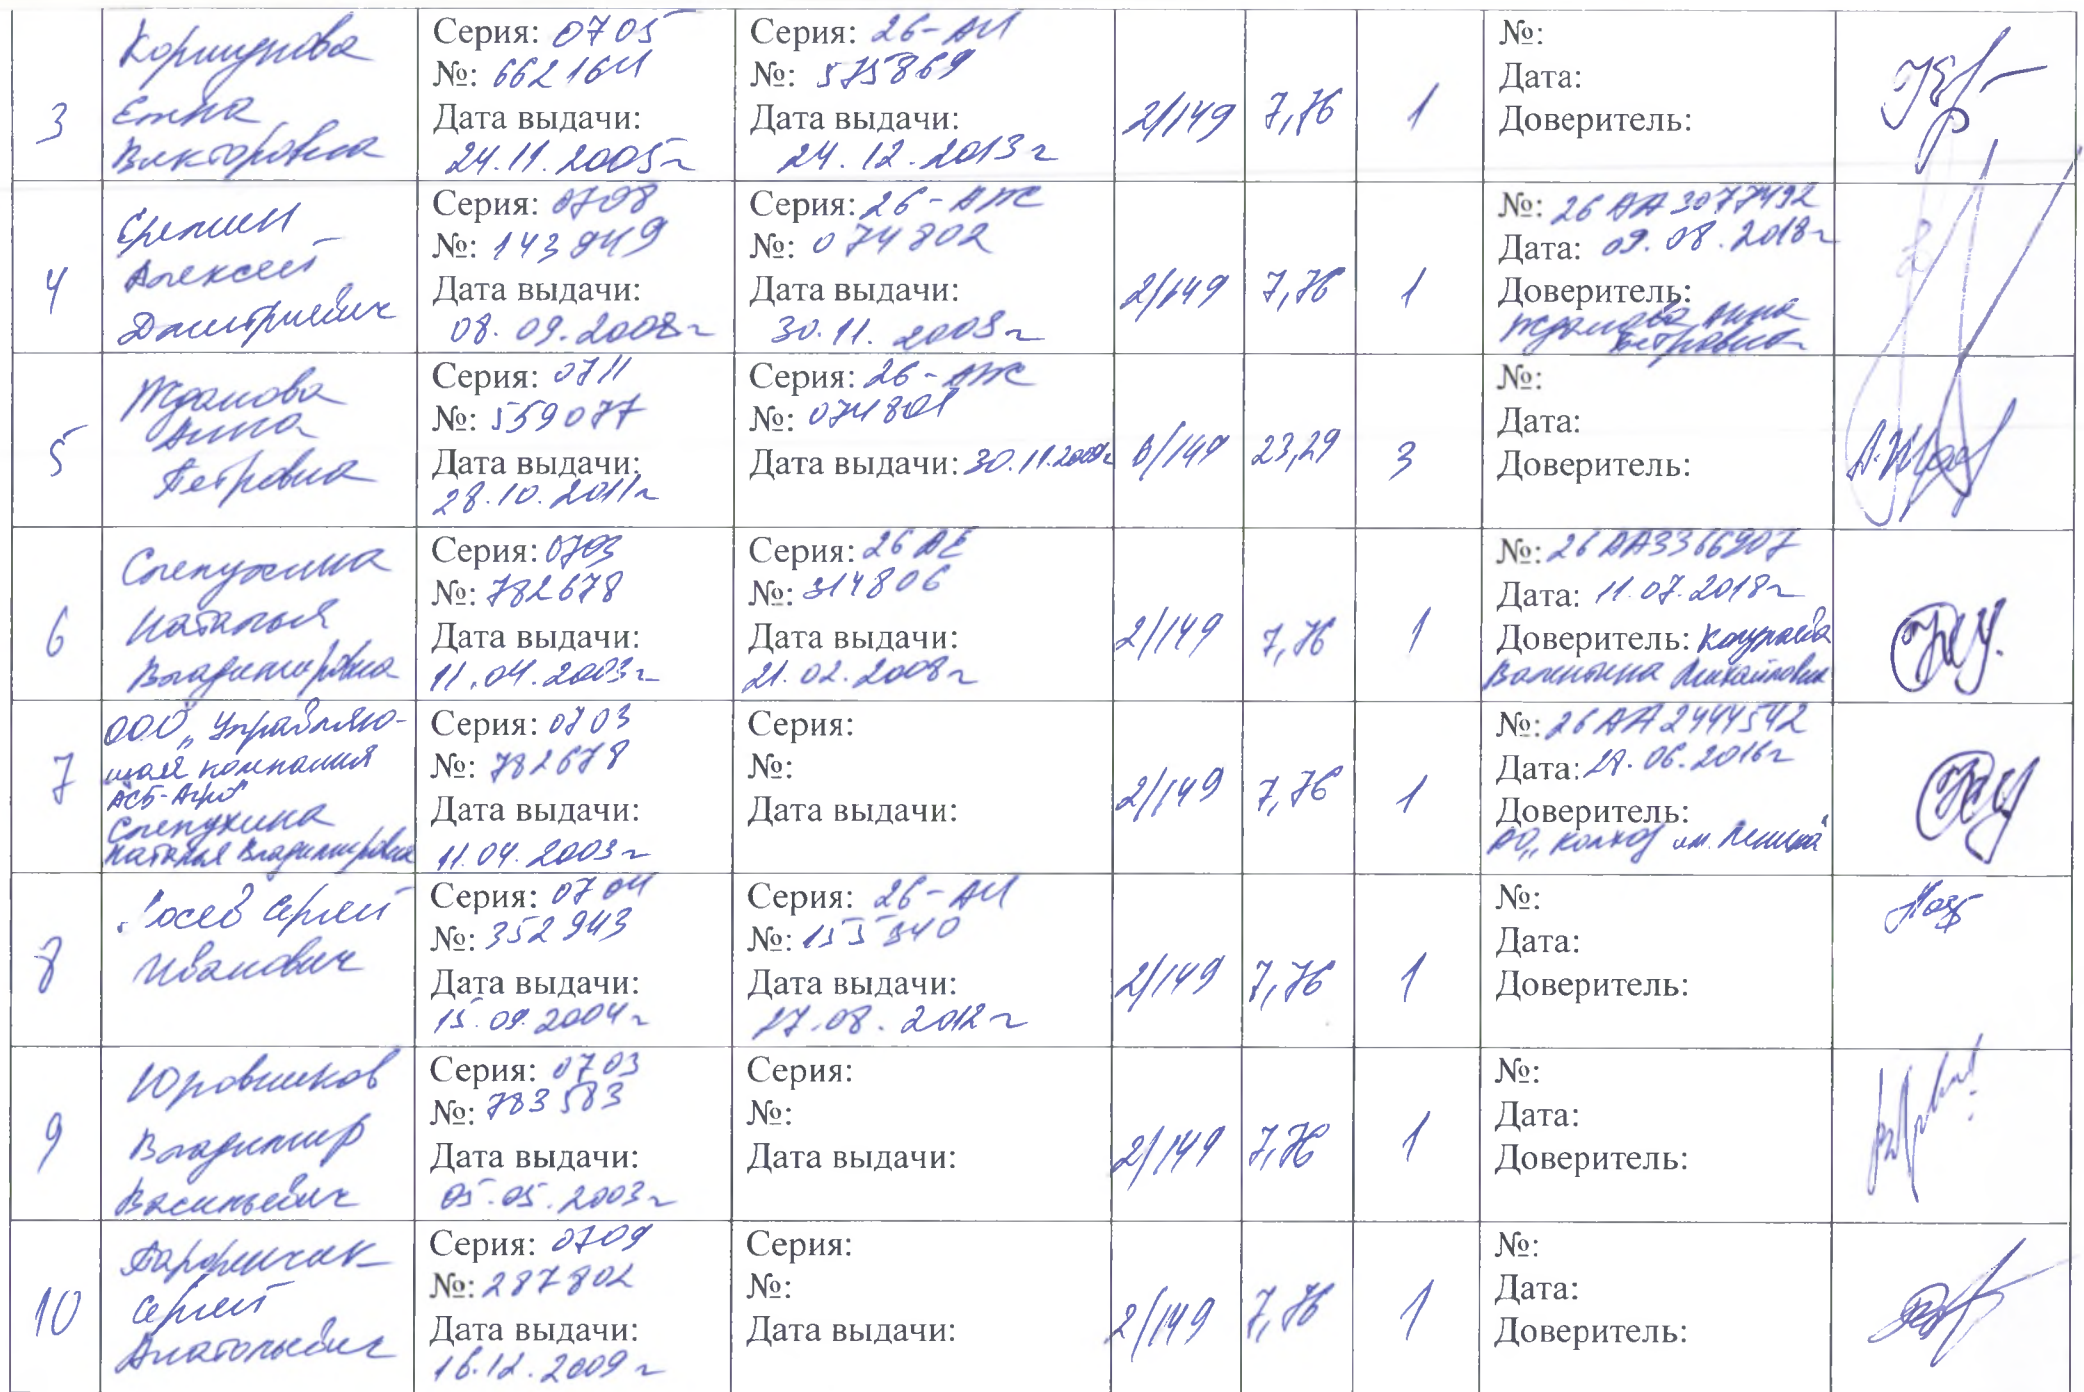 3
Коршунова
Елена
Викторовна
Серия: 0705
№: 662164
Дата выдачи:
24.11.2005г
Серия: 26-АИ
№: 575869
Дата выдачи:
24.12.2013г
2/149
7,76
1
№:
Дата:
Доверитель:
4
Еремин
Алексей
Дмитриевич
Серия: 0708
№: 143949
Дата выдачи:
08.09.2008г
Серия: 26-АЖ
№: 074802
Дата выдачи:
30.11.2009г
2/149
7,76
1
№: 26АА3077492
Дата: 09.08.2018г
Доверитель:
Жданова Анна
Петровна
5
Жданова
Анна
Петровна
Серия: 0711
№: 559077
Дата выдачи:
28.10.2011г
Серия: 26-АЖ
№: 074801
Дата выдачи: 30.11.2009г
6/149
23,29
3
№:
Дата:
Доверитель:
6
Слепухина
Наталья
Владимировна
Серия: 0703
№: 782678
Дата выдачи:
11.04.2003г
Серия: 26АЕ
№: 314806
Дата выдачи:
21.02.2008г
2/149
7,76
1
№: 26АА3366907
Дата: 11.07.2018г
Доверитель:
Валентина Михайловна
7
ООО „Управляю-
щая компания
АСБ-Агро"
Слепухина
Наталья Владимировна
Серия: 0703
№: 782678
Дата выдачи:
11.04.2003г
Серия:
№:
Дата выдачи:
2/149
7,76
1
№: 26АА2444542
Дата: .06.2016г
Доверитель:
АО „колхоз им. Ленина"
8
Сергей
Иванович
Серия: 0704
№: 352943
Дата выдачи:
15.09.2004г
Серия: 26-АИ
№: 155340
Дата выдачи:
17.08.2012г
2/149
7,76
1
№:
Дата:
Доверитель:
9
Юровников
Владимир
Васильевич
Серия: 0703
№: 783583
Дата выдачи:
05.05.2003г
Серия:
№:
Дата выдачи:
2/149
7,76
1
№:
Дата:
Доверитель:
10
Сергей
Анатольевич
Серия: 0709
№: 287802
Дата выдачи:
16.12.2009г
Серия:
№:
Дата выдачи:
2/149
7,76
1
№:
Дата:
Доверитель: